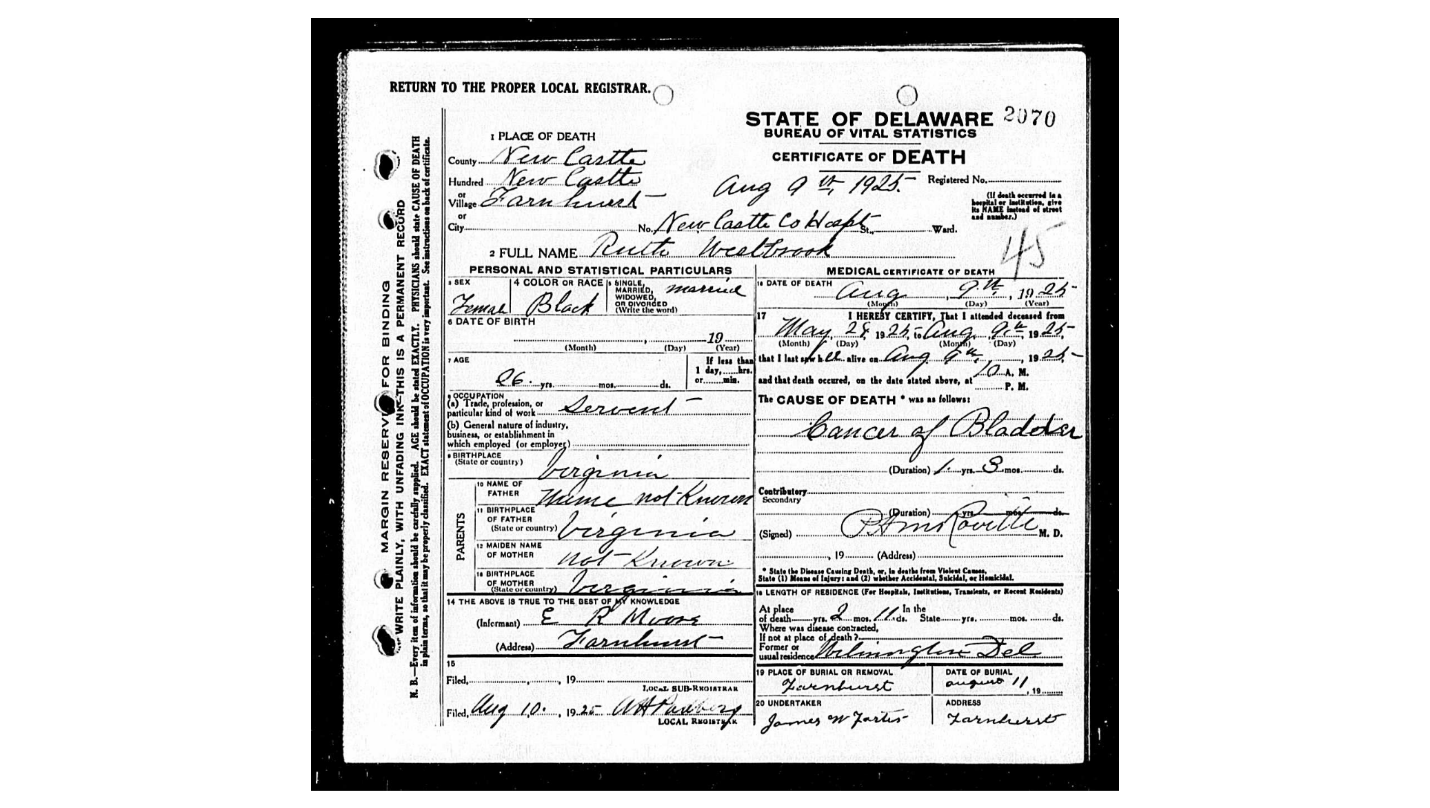 RETURN TO THE PROPER LOCAL REGISTRAR.
MARGIN RESERVED FOR BINDING
WRITE PLAINLY, WITH UNFADING INK—THIS IS A PERMANENT RECORD
N. B.—Every item of information should be carefully supplied. AGE should be stated EXACTLY. PHYSICIANS should state CAUSE OF DEATH
in plain terms, so that it may be properly classified. EXACT statement of OCCUPATION is very important. See instructions on back of certificate.
STATE OF DELAWARE 2070
BUREAU OF VITAL STATISTICS
CERTIFICATE OF DEATH
1 PLACE OF DEATH
County New Castle
Hundred New Castle
or
Village Farnhurst
or
City
Aug 9th, 1925 Registered No.
(If death occurred in a
hospital or institution, give
its NAME instead of street
and number.)
No. New Castle Co Hospt St., Ward.
2 FULL NAME Ruth Westbrook
45
PERSONAL AND STATISTICAL PARTICULARS
3 SEX Female
4 COLOR OR RACE Black
5 SINGLE,
MARRIED,
WIDOWED,
OR DIVORCED
(Write the word) married
6 DATE OF BIRTH
, 19
(Month) (Day) (Year)
7 AGE
yrs. mos. ds.
If less than
1 day, hrs.
or min.
8 OCCUPATION
(a) Trade, profession, or
particular kind of work Servent
(b) General nature of industry,
business, or establishment in
which employed (or employer)
9 BIRTHPLACE
(State or country) Virginia
PARENTS
10 NAME OF
FATHER Name not Known
11 BIRTHPLACE
OF FATHER
(State or country) Virginia
12 MAIDEN NAME
OF MOTHER not Known
13 BIRTHPLACE
OF MOTHER
(State or country) Virginia
14 THE ABOVE IS TRUE TO THE BEST OF MY KNOWLEDGE
(Informant) E R Moore
(Address) Farnhurst
15
Filed, , 19
LOCAL SUB-REGISTRAR
Filed, Aug 10. , 1925
LOCAL REGISTRAR
MEDICAL CERTIFICATE OF DEATH
16 DATE OF DEATH
Aug , 9th , 1925
(Month) (Day) (Year)
17 I HEREBY CERTIFY, That I attended deceased from
May 28 1925, to Aug 9th, 1925
(Month) (Day) (Month) (Day)
that I last saw h alive on Aug 9th , 1925
and that death occured, on the date stated above, at 10 A. M.
P. M.
The CAUSE OF DEATH * was as follows:
Cancer of Bladder
(Duration) 1 yrs. 3 mos. ds.
Contributory
Secondary
(Duration) yrs. mos. ds.
(Signed) M. D.
, 19 (Address)
* State the Disease Causing Death, or, in deaths from Violent Causes,
State (1) Means of Injury; and (2) whether Accidental, Suicidal, or Homicidal.
18 LENGTH OF RESIDENCE (For Hospitals, Institutions, Transients, or Recent Residents)
At place
of death yrs. 2 mos. 11 ds. In the
State yrs. mos. ds.
Where was disease contracted,
If not at place of death?
Former or
usual residence Wilmington Del
19 PLACE OF BURIAL OR REMOVAL
Farnhurst
DATE OF BURIAL
august 11 , 19
20 UNDERTAKER
James W
ADDRESS
Farnhurst